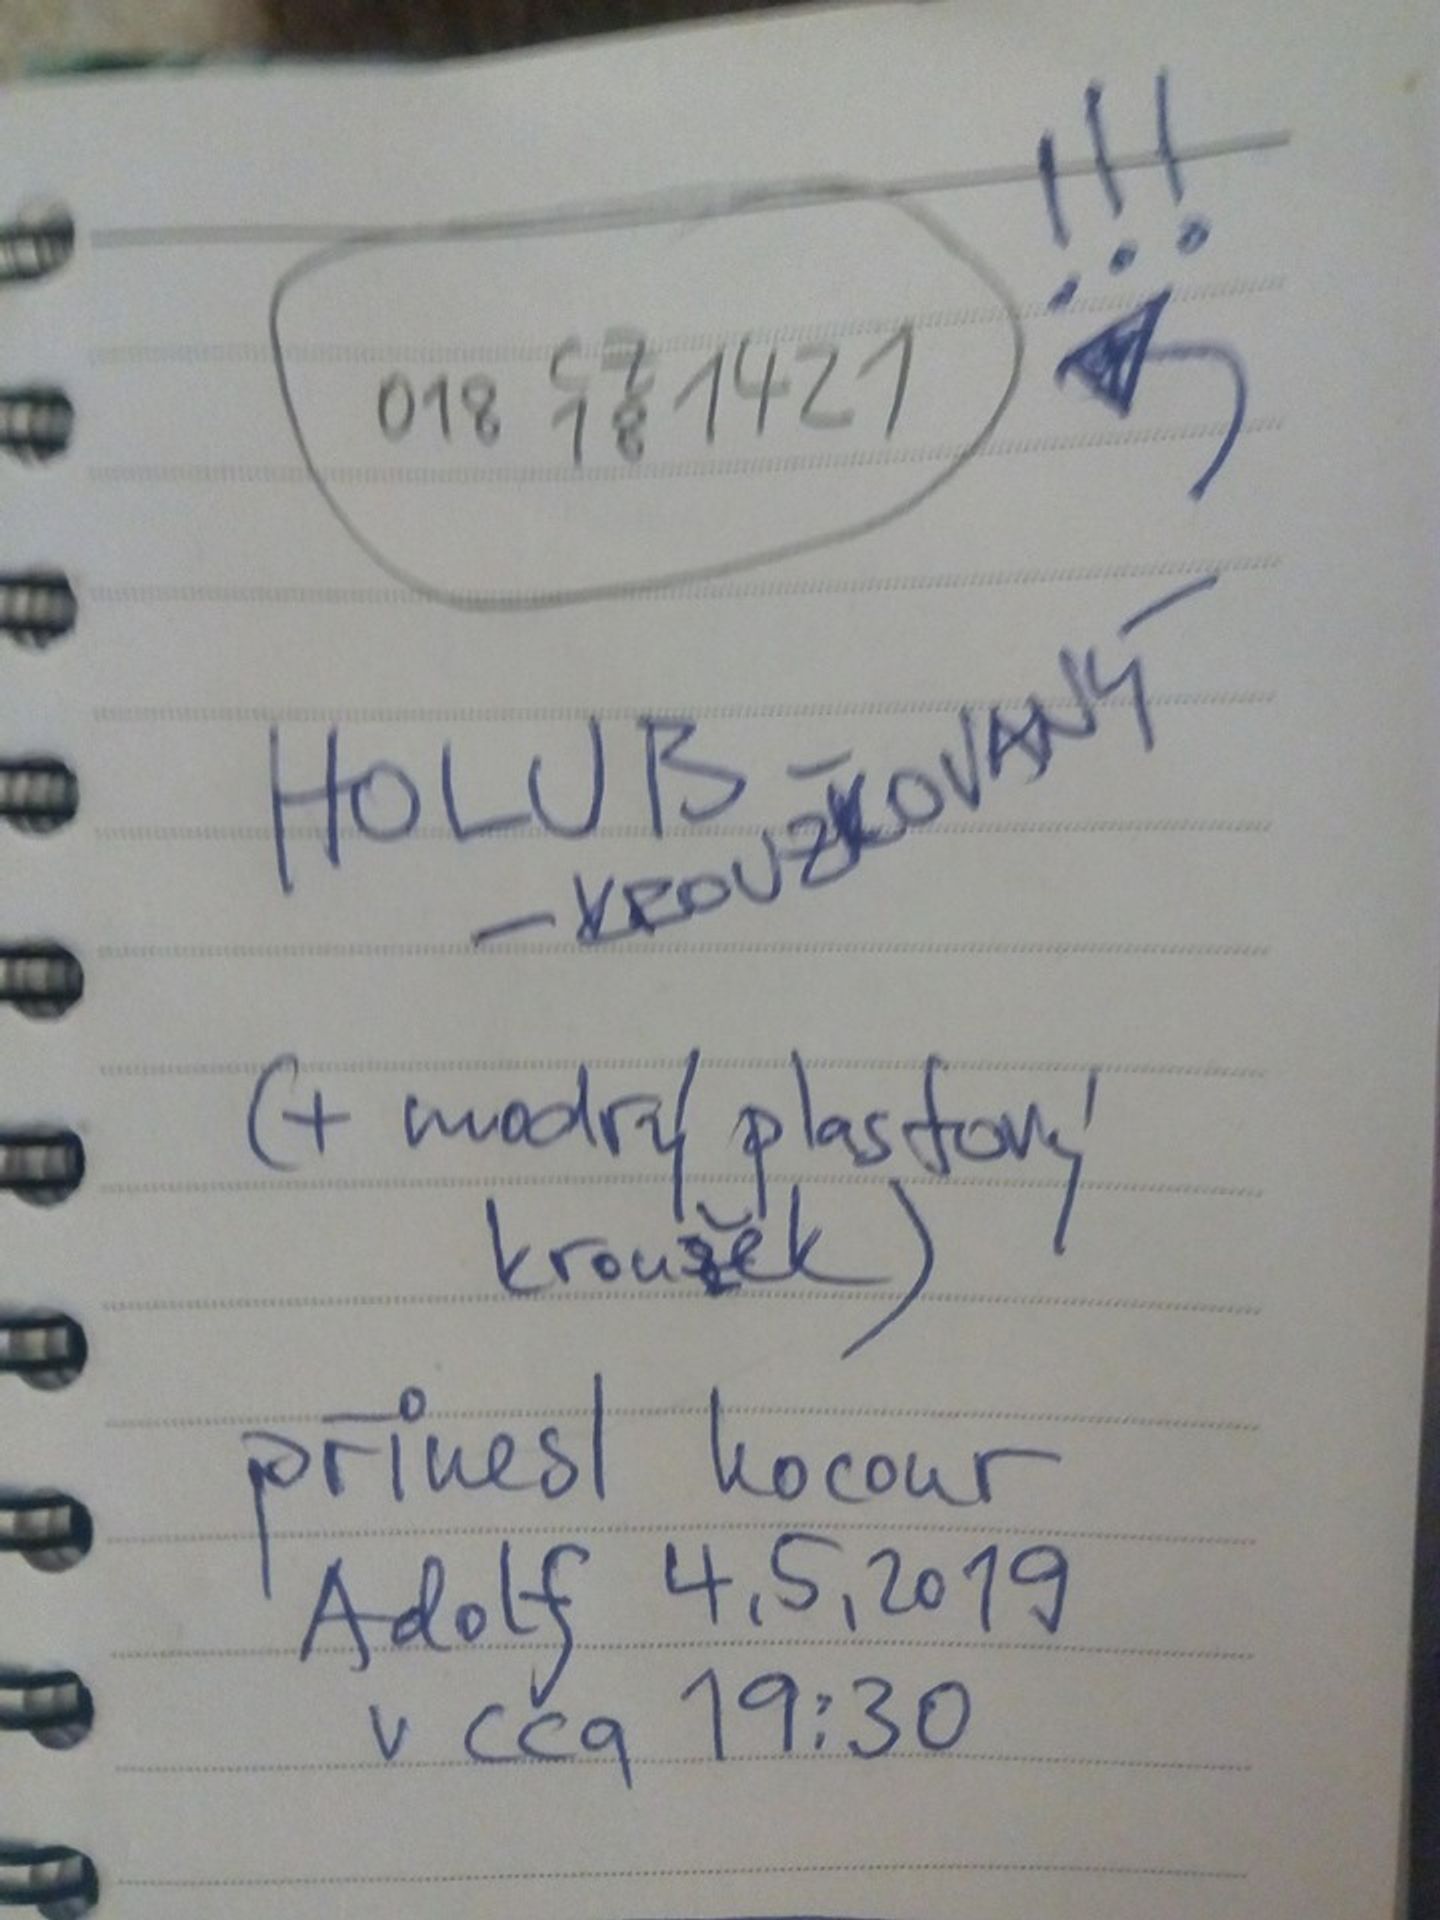 !!!
018 CZ 18 1421
HOLUB
- KROUŽKOVANÝ
(+ modrý plastový
kroužek)
přinesl kocour
Adolf 4.5.2019
v cca 19:30